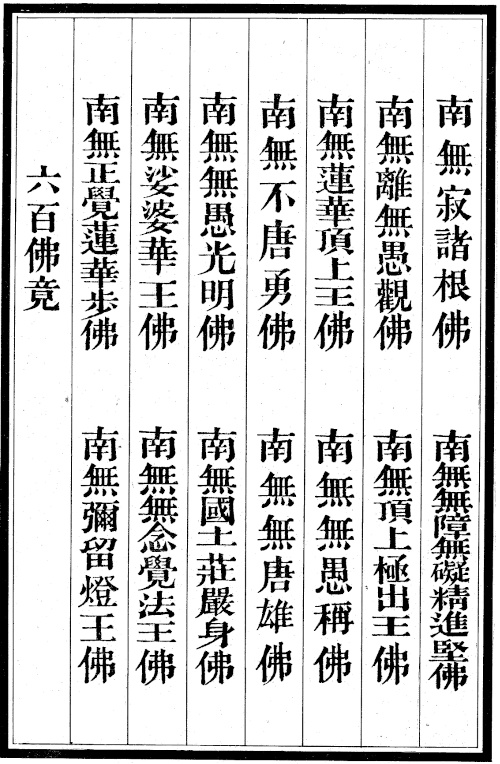 南無寂諸根佛
南無無障無礙精進堅佛
南無離無愚觀佛
南無頂上極出王佛
南無蓮華頂上王佛
南無無愚稱佛
南無不唐勇佛
南無無唐雄佛
南無無愚光明佛
南無國土莊嚴身佛
南無娑婆華王佛
南無無念覺法王佛
南無正覺蓮華步佛
南無彌留燈王佛
六百佛竟